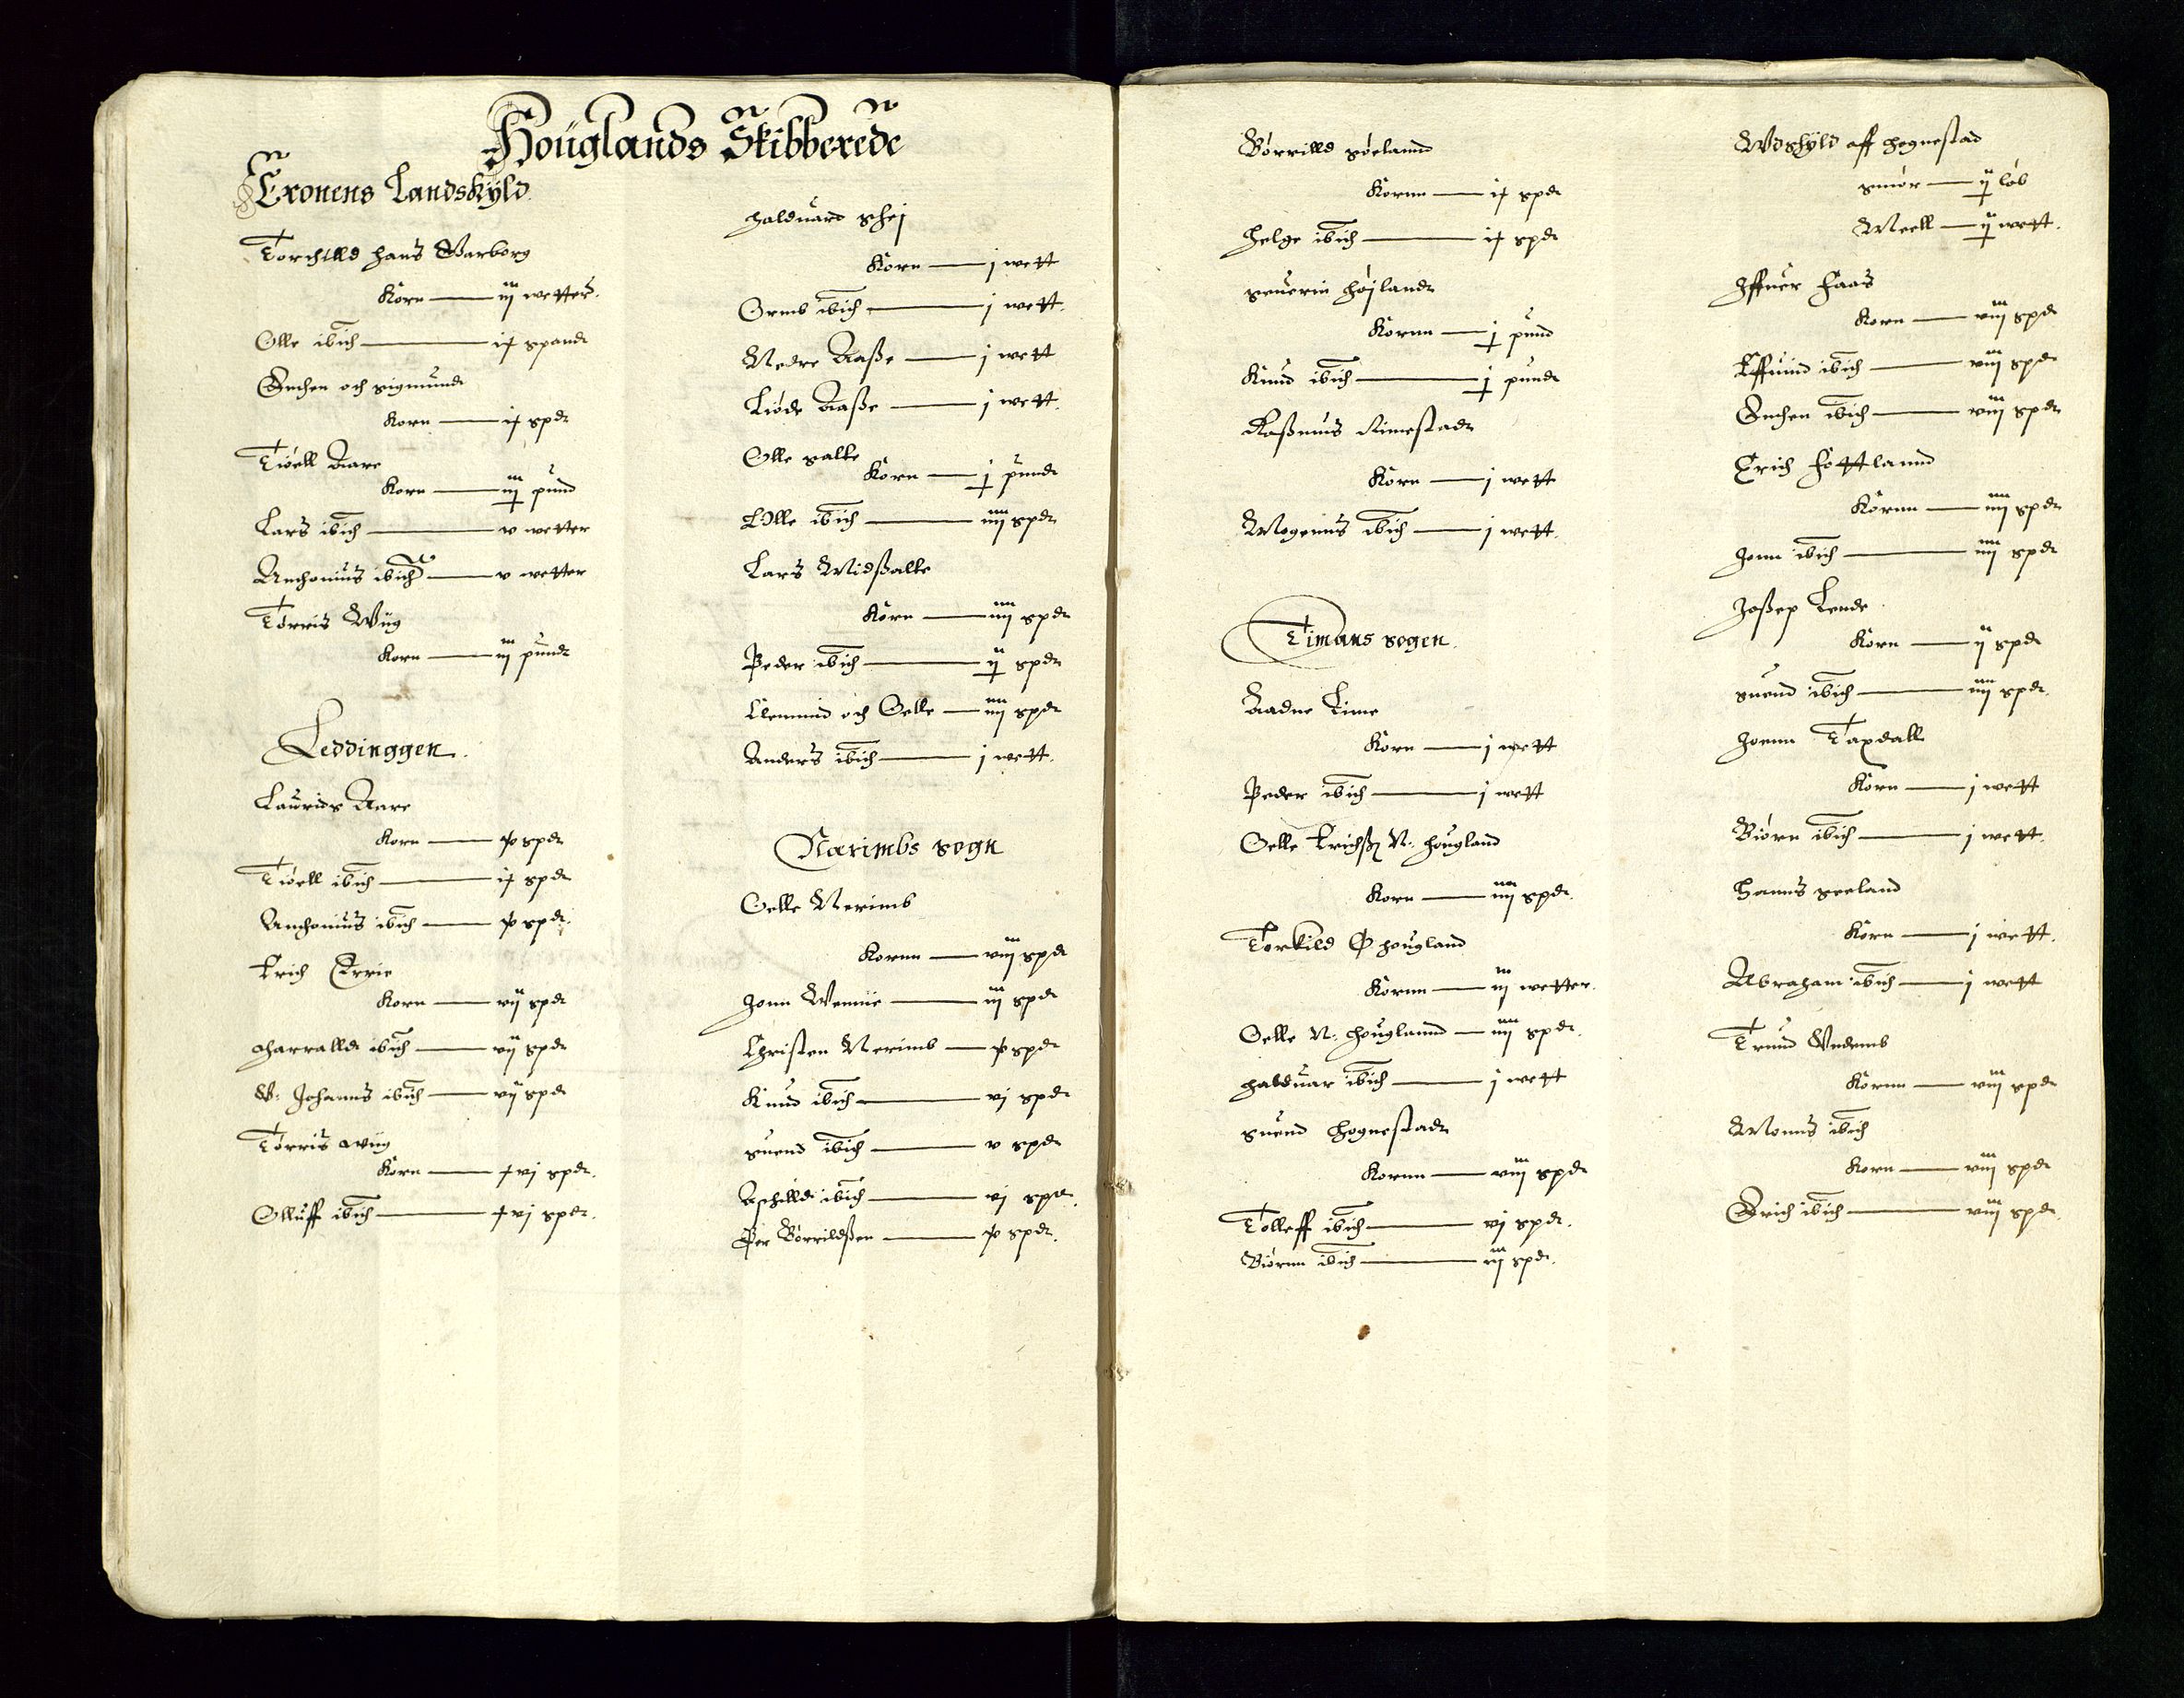 Houglands Skibberede
Cronens Landskyld
Torchilld Hans Warborg
Korn — iij wetter
Olle ibid — spand
Enchen och Sigmund
Korn — spd
Tiöell Aare
Korn — pund
Lars ibid — v wetter
Anthonius ibid — v wetter
Torris Wiig
Korn — iij pund
Leddinggen
Laurids Aare
Korn — spd
Tiöell ibid — spd
Anthonius ibid — spd
Erich Errie
Korn — vij spd
Harralld ibid — vij spd
Johanns ibid — vij spd
Torris Wiig
Korn — vj spd
Olluff ibid — vj spd
Halduard
Korn — j wett
Ormb ibid — j wett
Nedre Aaße — j wett
Liöde Aaße — j wett
Olle Salte
Korn — pund
Olle ibid — iiij spd
Lars Midßalte
Korn — iiij spd
Peder ibid — spd
Clemmid och Oelle — iiij spd
Anders ibid — j wett
Nærimbs sogn
Oelle Nerimb
Kornn — viij spd
Jonn — iij spd
Christen Nerimb — spd
Knud ibid — vj spd
Suend ibid — v spd
Aschilld ibid — vj spd
Per Börrildßen — spd
Börrilld Söelannd
Kornn — spd
Helge ibid — spd
Seuerin Höjland
Kornn — pund
Knud ibid — pund
Raßmus Rimestad
Korn — j wett
Mogenns ibid — j wett
Timans sogen
Aadne Lime
Korn — j wett
Peder ibid — j wett
Oelle Erichß N. Hougland
Korn — iiij spd
Torkild Hougland
Kornn — iij wetter
Oelle N. Houglannd — iiij spd
Halduar ibid — j wett
Suend Hognestad
Kornn — viij spd
Tolleff ibid — vj spd
Biörnn ibid — spd
Wdskyld aff Hognestad
Smör — löb
Meell — wett
Iffuer Faas
Korn — viij spd
Effuind ibid — viij spd
Enchen ibid — viij spd
Erich Fottlannd
Kornn — iiij spd
Jonn ibid — iiij spd
Joßep Lende
Korn — ij spd
Suend ibid — iiij spd
Joenn Taxdall
Korn — j wett
Biörn ibid — j wett
Hanns Seeland
Korn — j wett
Abraham ibid — j wett
Trund Wndemb
Kornn — viij spd
Monns ibid
Korn — viij spd
Erich ibid — viij spd